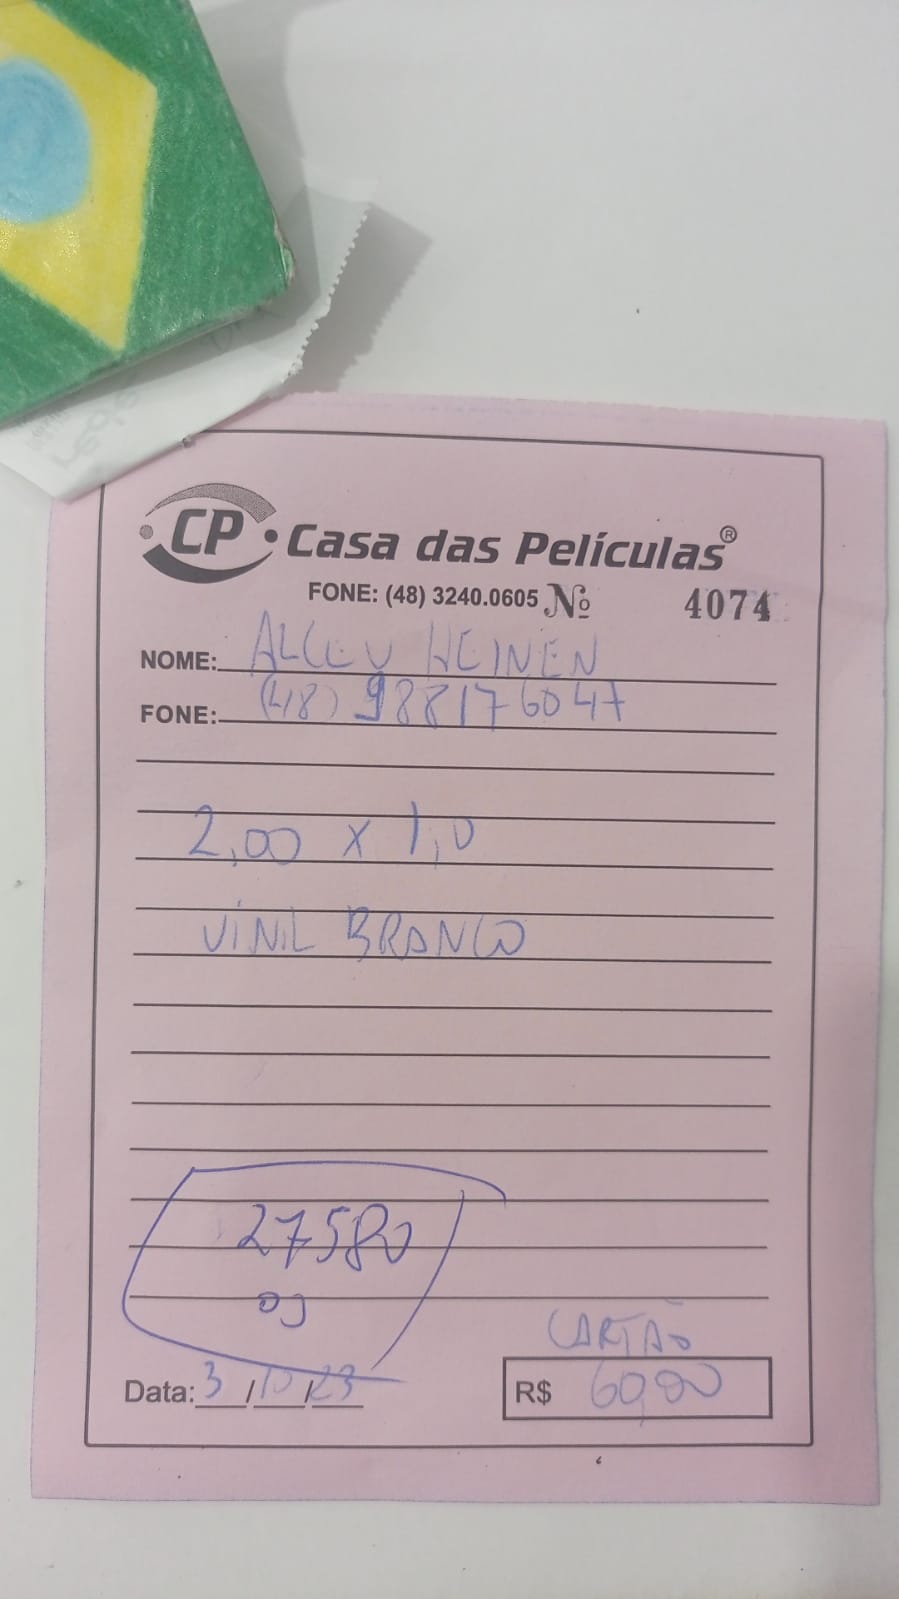 CP Casa das Películas®
FONE: (48) 3240.0605 Nº 4074
NOME: ALCEU HEINEN
FONE: (48) 988176047
2,00 x 1,0
VINIL BRANCO
27580
CARTÃO
Data: 3/10/23 R$ 60,00